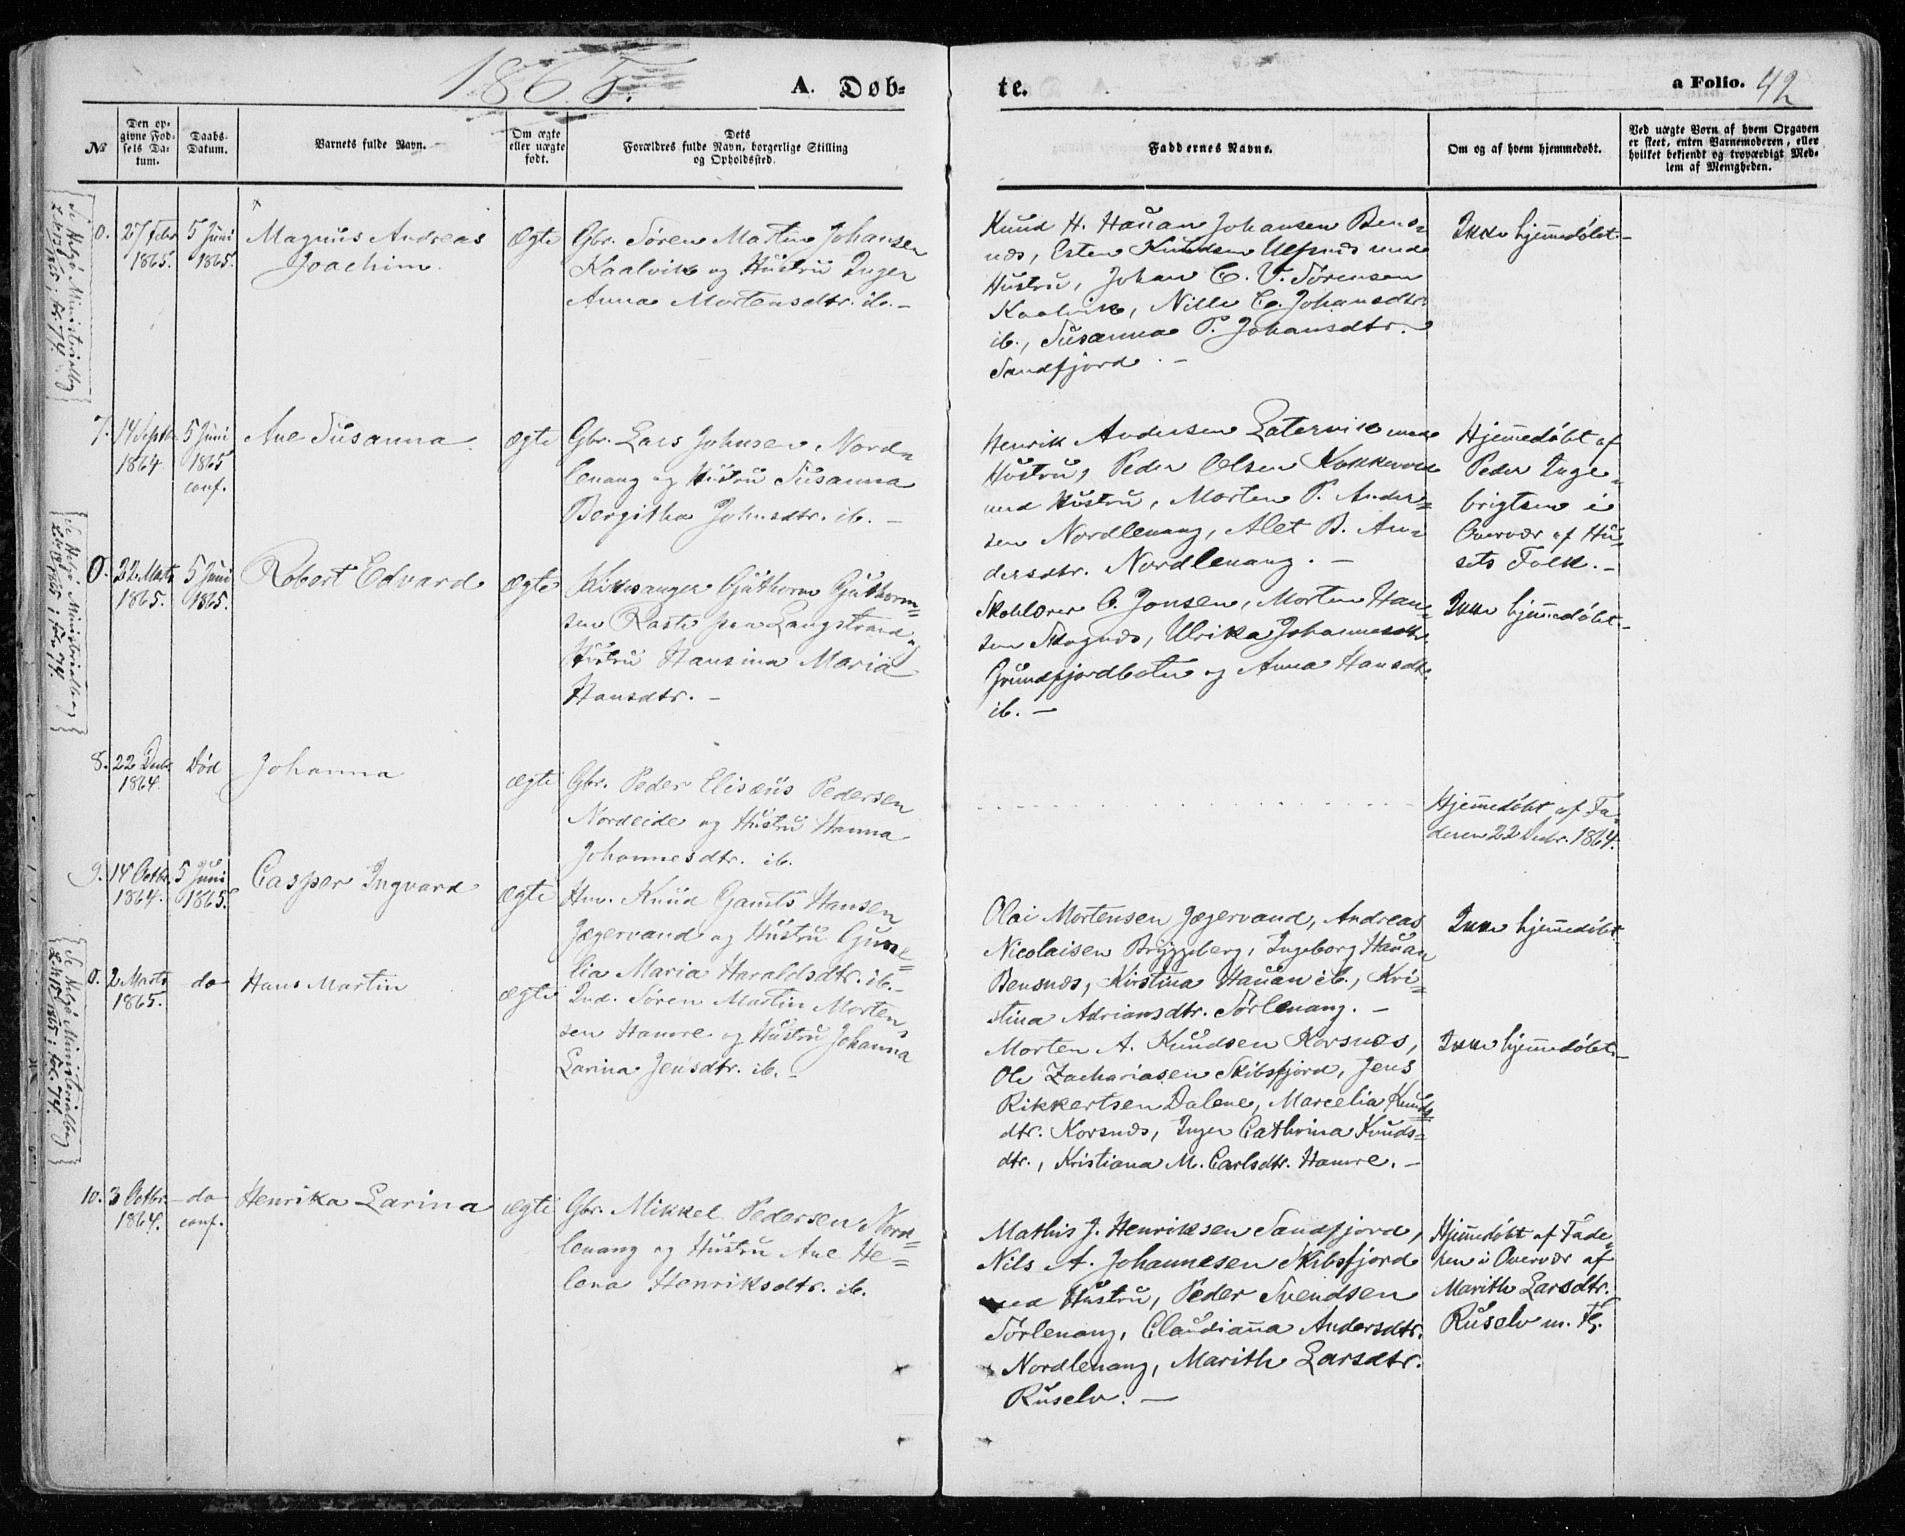 1865.
A. Døb-
te.
a Folio. 42
№
Den op-
givne Fød-
sels Da-
tum.
Daabs-
Datum.
Barnets fulde Navn.
Om ægte
eller uægte
født.
Dets
Forældres fulde Navn, borgerlige Stilling
og Opholdssted.
Faddernes Navne.
Om og af hvem hjemmedøbt.
Ved uægte Børn af hvem Opgaven
er skeet, enten Barnemoderen, eller
hvilket bekjendt og troværdigt Med-
lem af Menigheden.
0.
27 Febr
1865.
5 Juni
1865.
Magnus Andreas
Joachim.
ægte
Gbr. Søren Martin Johansen
Kaalvik og Hustru Inger
Anna Mortensdtr. ib. –
Knud H. Hauan, Johansen Bens-
næs, Esten Knudsen Ulfsnæs med
Hustru, Johan C. V. Sørensen
Kaalvik, Nille C. Johansdtr.
ib., Susanna P. Johansdtr.
Sandfjord. –
Ikke hjemmedøbt. –
7.
14 Septbr
1864
5 Juni
1865
conf.
Ane Susanna
ægte
Gbr. Lars Johnsen Nord-
lenang og Hustru Susanna
Bergitha Johnsdtr. ib. –
Henrik Andersen Latervik med
Hustru, Peder Olsen Kokkevold
med Hustru, Morten P. Ander-
sen Nordlenang, Alet B. An-
dersdtr. Nordlenang. –
Hjemmedøbt af
Peder Inge-
brigtsen i
Overvær af Hu-
sets Folk. –
0.
22 Marts
1865.
5 Juni
1865.
Robert Edvard
ægte
Kirkesanger Guthorm Guthorm-
sen Raste fra Langstrand og
Hustru Hansina Maria
Hansdtr. –
Skolelærer O. Jonsen, Morten Han-
sen Skognæs, Ulrika Johannesdtr.
Grundfjordbotn og Anna Hansdtr.
ib. –
Ikke hjemmedøbt –
8.
22 Decbr.
1864.
Død
Johanna
ægte
Gbr. Peder Elisæus Pedersen
Nordeide og Hustru Hanna
Johannesdtr. ib.
Hjemmedøbt af Fa-
deren 22 Decbr. 1864.
9.
14 Octbr.
1864.
5 Juni
1865.
Casper Ingvard
ægte
Huv. Knud Gamts Hansen
Jægervand og Hustru Gune-
lia Maria Haraldsdtr. ib. –
Olai Mortensen Jægervand, Andreas
Nicolaisen Bryggeberg, Ingeborg Hauan
Bensnæs, Kirstina Hauan ib., Kri-
stina Adriansdtr. Sørlenang. –
Ikke hjemmedøbt.
0.
2 Marts
1865.
do
Hans Martin
ægte
Ind. Søren Martin Morten-
sen Hamre og Hustru Johanna
Larina Jensdtr. ib. –
Morten A. Knudsen Korsnæs,
Ole Zachariasen Skibsfjord, Jens
Rikkertsen Dalene, Marcelia Knuds-
dtr. Korsnæs, Inger Cathrina Knuds-
dtr., Kristiana M. Carlsdtr. Hamre. –
Ikke hjemmedøbt –
10.
3 Octbr.
1864.
do
conf.
Henrika Larina
ægte
Gbr. Mikkel Pedersen Nord-
lenang og Hustru Ane He-
lena Henriksdtr. ib.
Mathis J. Henriksen Sandfjord,
Nils A. Johannesen Skibsfjord
med Hustru, Peder Svendsen
Sørlenang, Claudianna Andersdtr.
Nordlenang, Marith Larsdtr.
Ruselv. –
Hjemmedøbt af Fade-
ren i Overvær af
Marith Larsdtr.
Ruselv m. Fl.